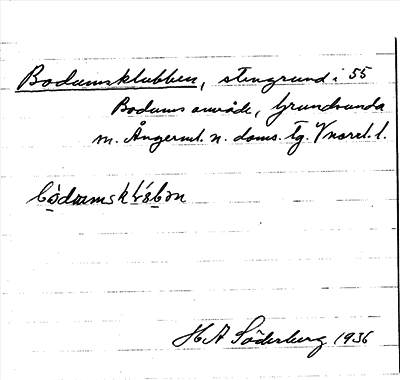 Bodumsklubben, stengrund i 55
Bodums område, Grundsunda
m. Ångerml. n. doms. tg. V norrl. l.
H A Söderberg 1936